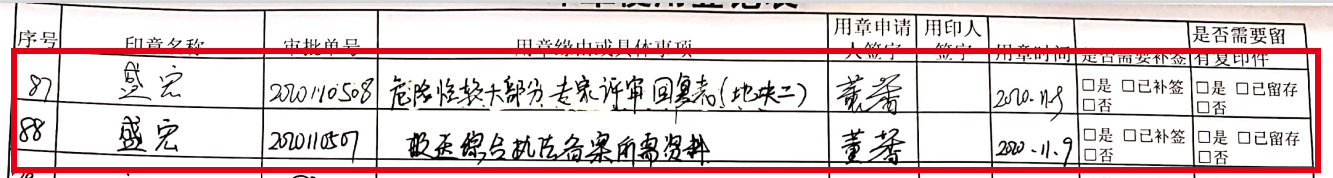 序号 印章名称 审批单号 用章缘由或具体事项 用章申请人签字 用印人签字 用章时间 是否需要补签 是否需要留有复印件
87 盛宏 2020110508 危险性较大部分专家评审回复表(地块二) 董馨 2020.11.9 □是 □已补签 □否 □是 □已留存 □否
88 盛宏 2020110507 报送综合执法备案所需资料 董馨 2020.11.9 □是 □已补签 □否 □是 □已留存 □否